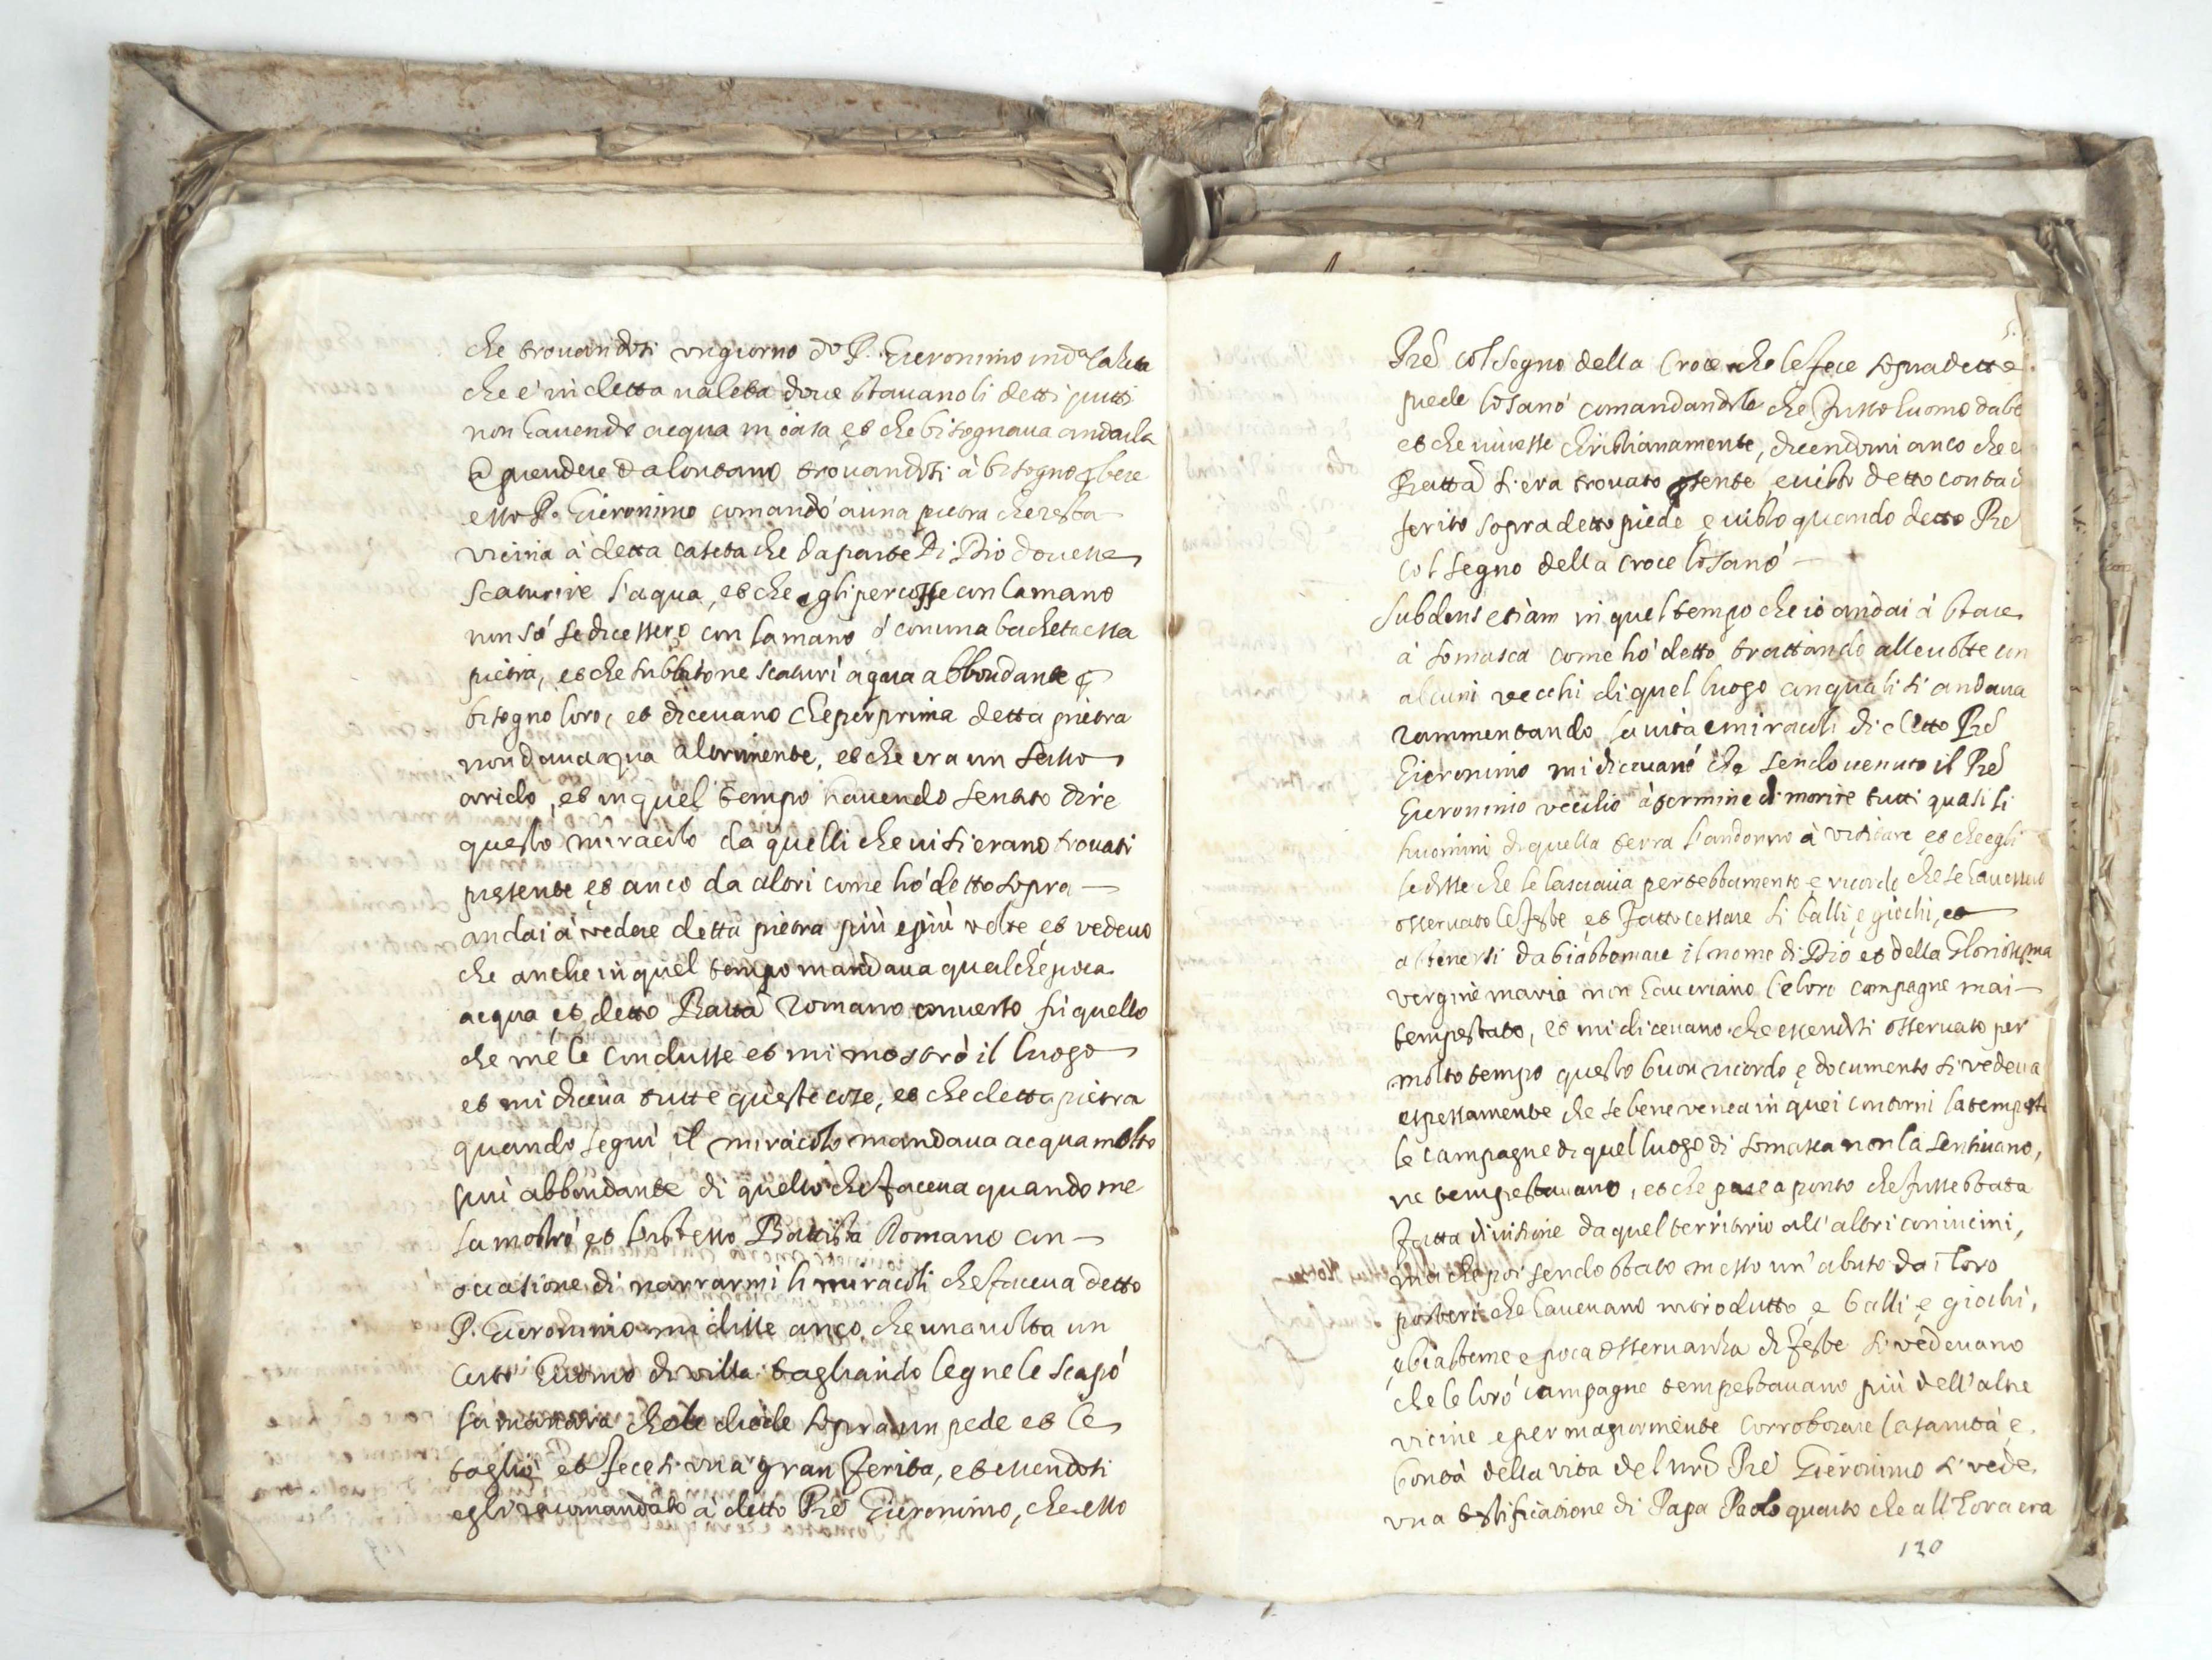 che trovandosi un giorno do P. Gieronimo in da Caseta
che è in detta valeta dove stavano li detti putti
non havendo acqua in casa et che bisognava andarla
a prendere da lontano trovandosi à bisogno p bere
esso P. Gieronimo comandò a una pietra che resta
vicina à detta caseta che da parte di Dio dovesse
scaturire l'aqua, et che egli percosse con la mano
non sò se dicessero con la mano ò con una bacheta essa
pietra, et che subbito ne scaturì aqua abbondante p
bisogno loro, et dicevano che per prima detta pietra
non dava aqua altrimente, et che era un sasso
arido, et in quel tempo havendo sentito dire
questo miracolo da quelli che vi si erano trovati
presente et anco da altri come hò detto sopra
andai à vedere detta pietra più e più volte et vedevo
che anche in quel tempo mandava qualche poca
acqua et detto Batta Romano converso fù quello
che mè le condusse et mi mostrò il luogo
et mi diceva tutte queste cose, et che detta pietra
quando seguì il miracolo mandava acqua molto
più abbondante di quello che faceva quando me
la mostrò et l'istesso Battista Romano con
occasione di narrarmi li miracoli che faceva detto
P. Gieronimo mi disse anco, che una volta un
certo huomo di villa tagliando legne le scapò
la manara che le diede sopra un pede et le
tagliò et fecesi una gran ferita, et essendosi
egli racomandato à detto Prē Gieronimo, che esso
Prē col segno della Croce che le fece sopra detto
piede lo sanò comandandole che fusse huomo da be
et che vivesse christianamente, dicendomi anco che e
Batta si era trovato pnte e visto detto contad
ferito sopra detto piede e visto quando detto Prē
col segno della croce lo sanò
Subdens etiam in quel tempo che io andai à stare
à Somasca come hò detto trattando alle volte con
alcuni vecchi di quel luogo con quali si andava
rammentando la vita e miracoli di detto Prē
Gieronimo mi dicevano che sendo venuto il Prē
Gieronimo vecchio à termine di morire tutti quasi li
huomini di quella terra l'andorno à visitare et che egli
le disse che le lasciava per testamento e ricordo che se havessero
osservato le feste et fatto cessare li balli e giochi, et
astenersi da biastemare il nome di Dio et della Gloriosissma
vergine maria non haveriano le loro campagne mai
tempestato, et mi dicevano che essendosi osservato per
molto tempo questo buon ricordo e documento si vedeva
espessamente che se bene veneva in quei contorni la tempesta
le campagne di quel luogo di Somasca non la sentivano,
ne tempestavano, et che pare a ponto che fusse stata
fatta divisione da quel territorio all'altri convicini,
ma che poi sendo stato messo un' abuso da i loro
posteri che havevano introdutto e balli e giochi,
e biasteme e poca osservanza di feste si vedevano
che le loro campagne tempestavano più dell'altre
vicine e per magiormente corroborare la santità e
bontà della vita del nrō Prē Gieronimo si vede
una testificatione di Papa Paolo quarto che all'hora era
120